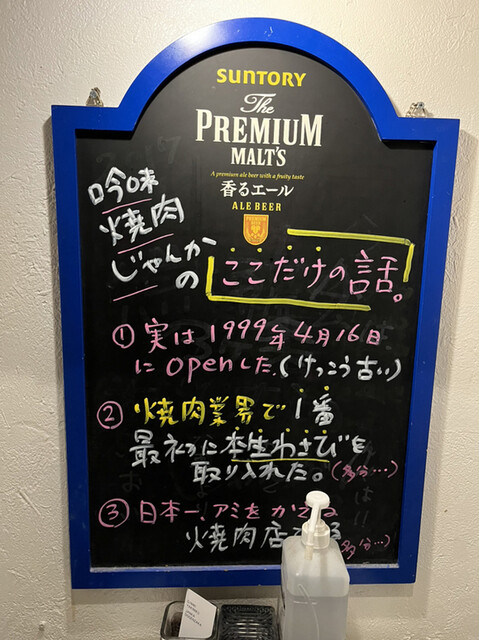 SUNTORY
The
PREMIUM
MALT'S
A premium ale beer with a fruity taste
香るエール
ALE BEER
PREMIUM
吟味
焼肉
じゃんか
の
ここだけの話。
① 実は1999年4月16日
にopenした。(けっこう古い)
② 焼肉業界で1番
最初に本生わさびを
取り入れた。(多分…)
③ 日本一、アミをかえる
焼肉店
多分…)